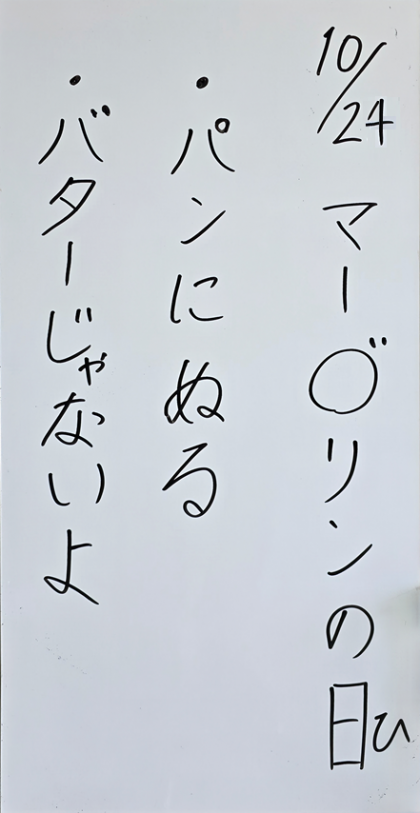 10/24 マー◯゛リンの日ひ
・パンにぬる
・バターじゃないよ